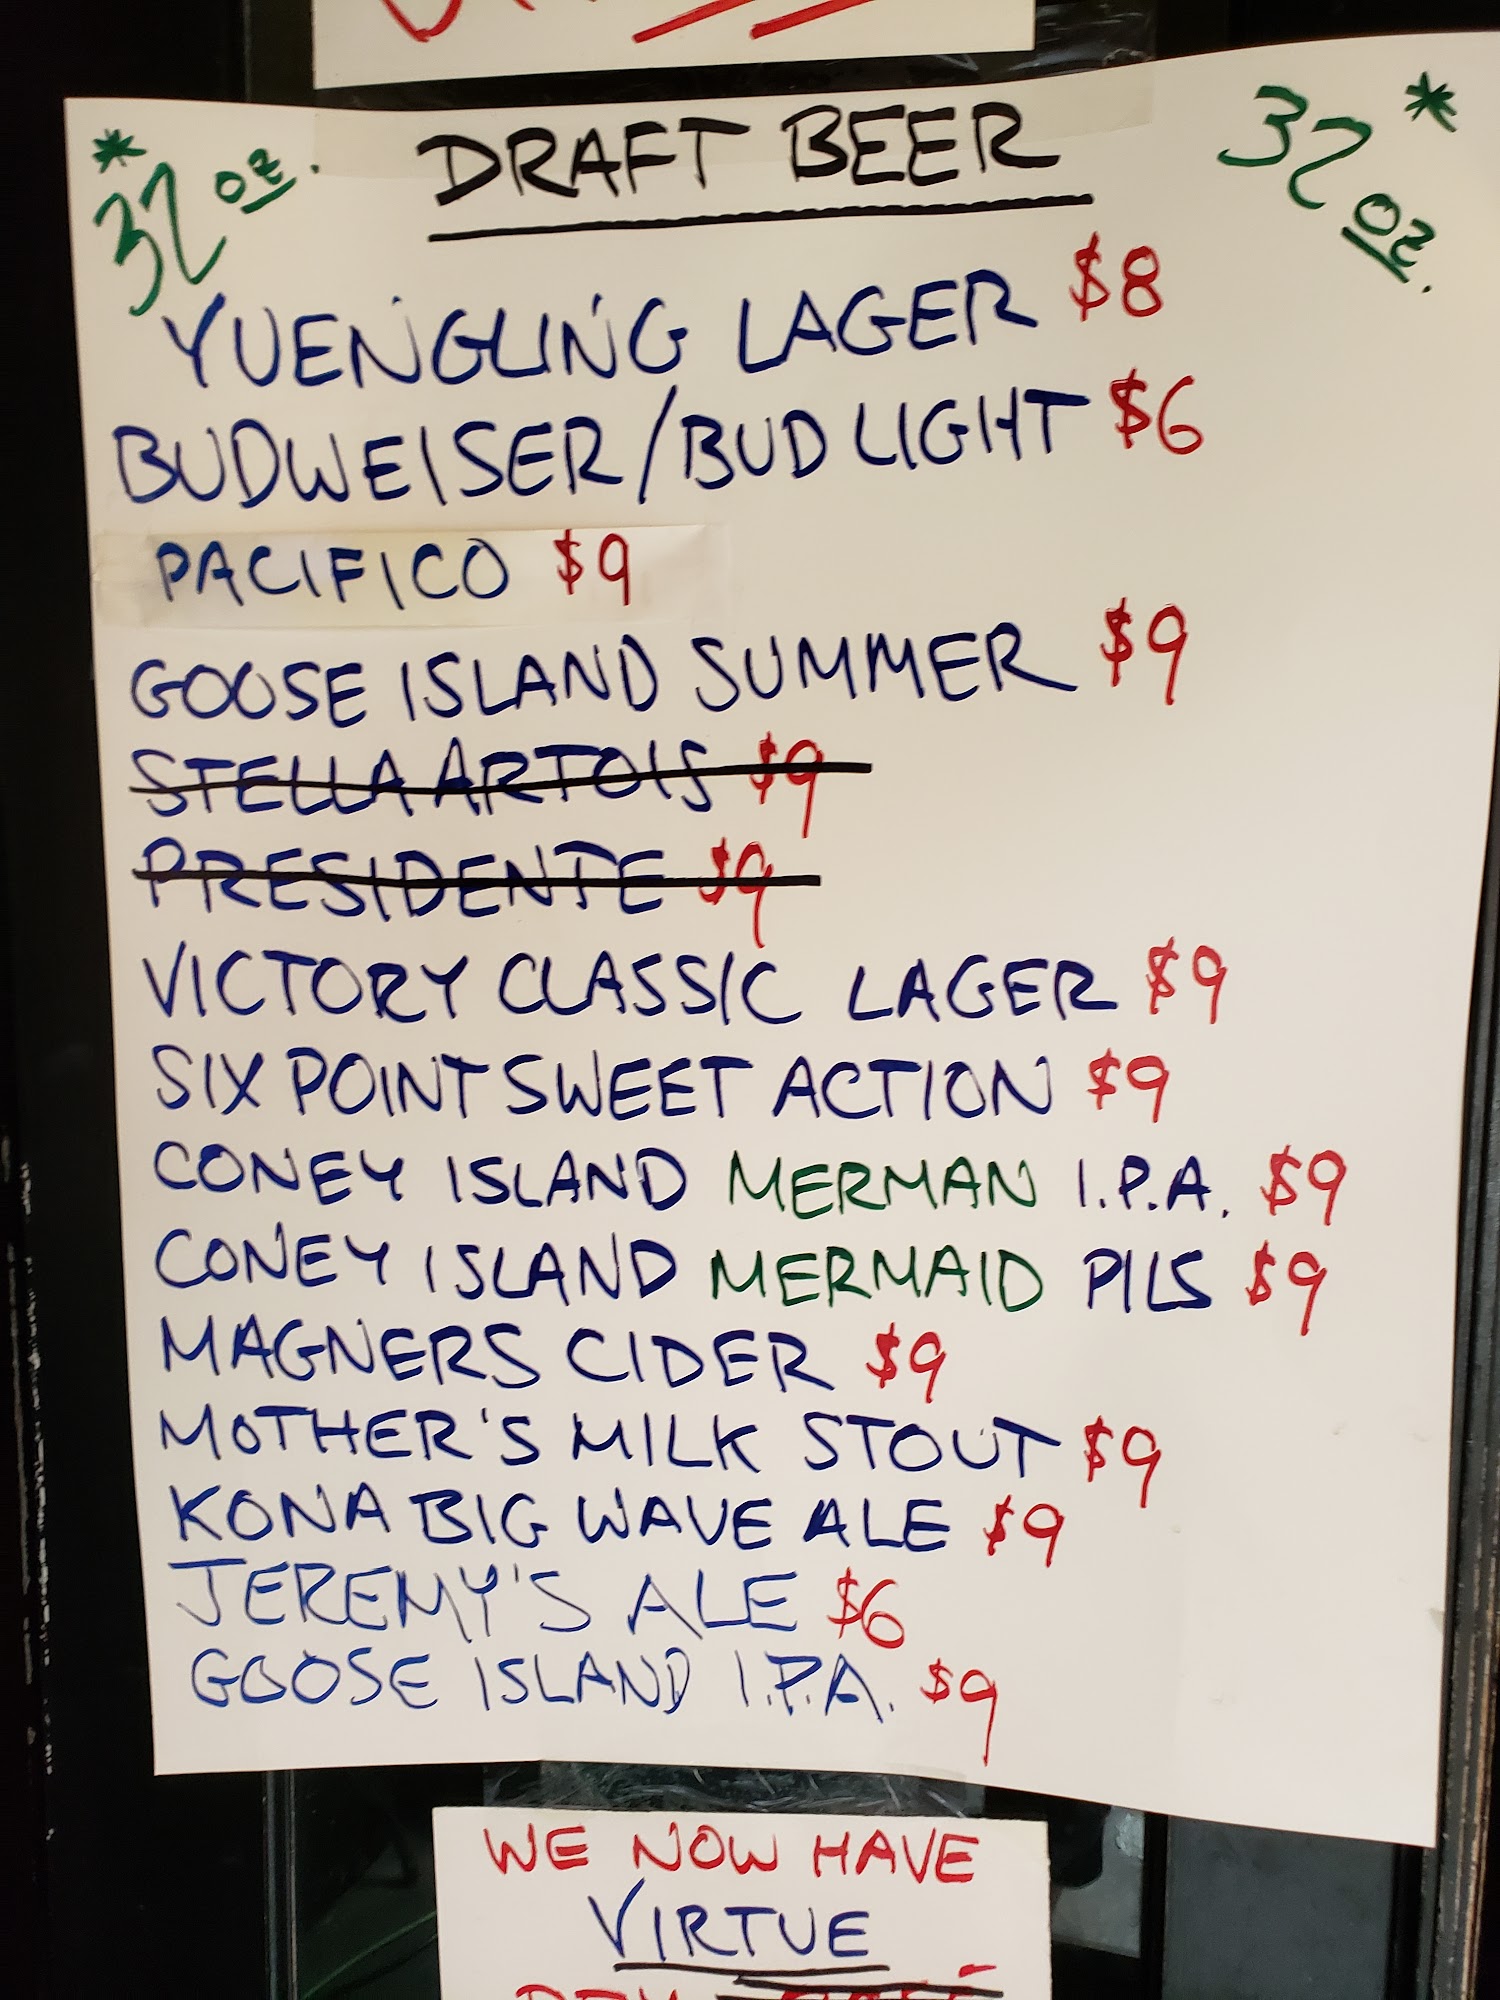 * 32 oz.
DRAFT BEER
32 oz. *
YUENGLING LAGER $8
BUDWEISER/BUD LIGHT $6
PACIFICO $9
GOOSE ISLAND SUMMER $9
STELLA ARTOIS $9
PRESIDENTE $9
VICTORY CLASSIC LAGER $9
SIX POINT SWEET ACTION $9
CONEY ISLAND MERMAN I.P.A. $9
CONEY ISLAND MERMAID PILS $9
MAGNERS CIDER $9
MOTHER'S MILK STOUT $9
KONA BIG WAVE ALE $9
JEREMY'S ALE $6
GOOSE ISLAND I.P.A. $9
WE NOW HAVE
VIRTUE